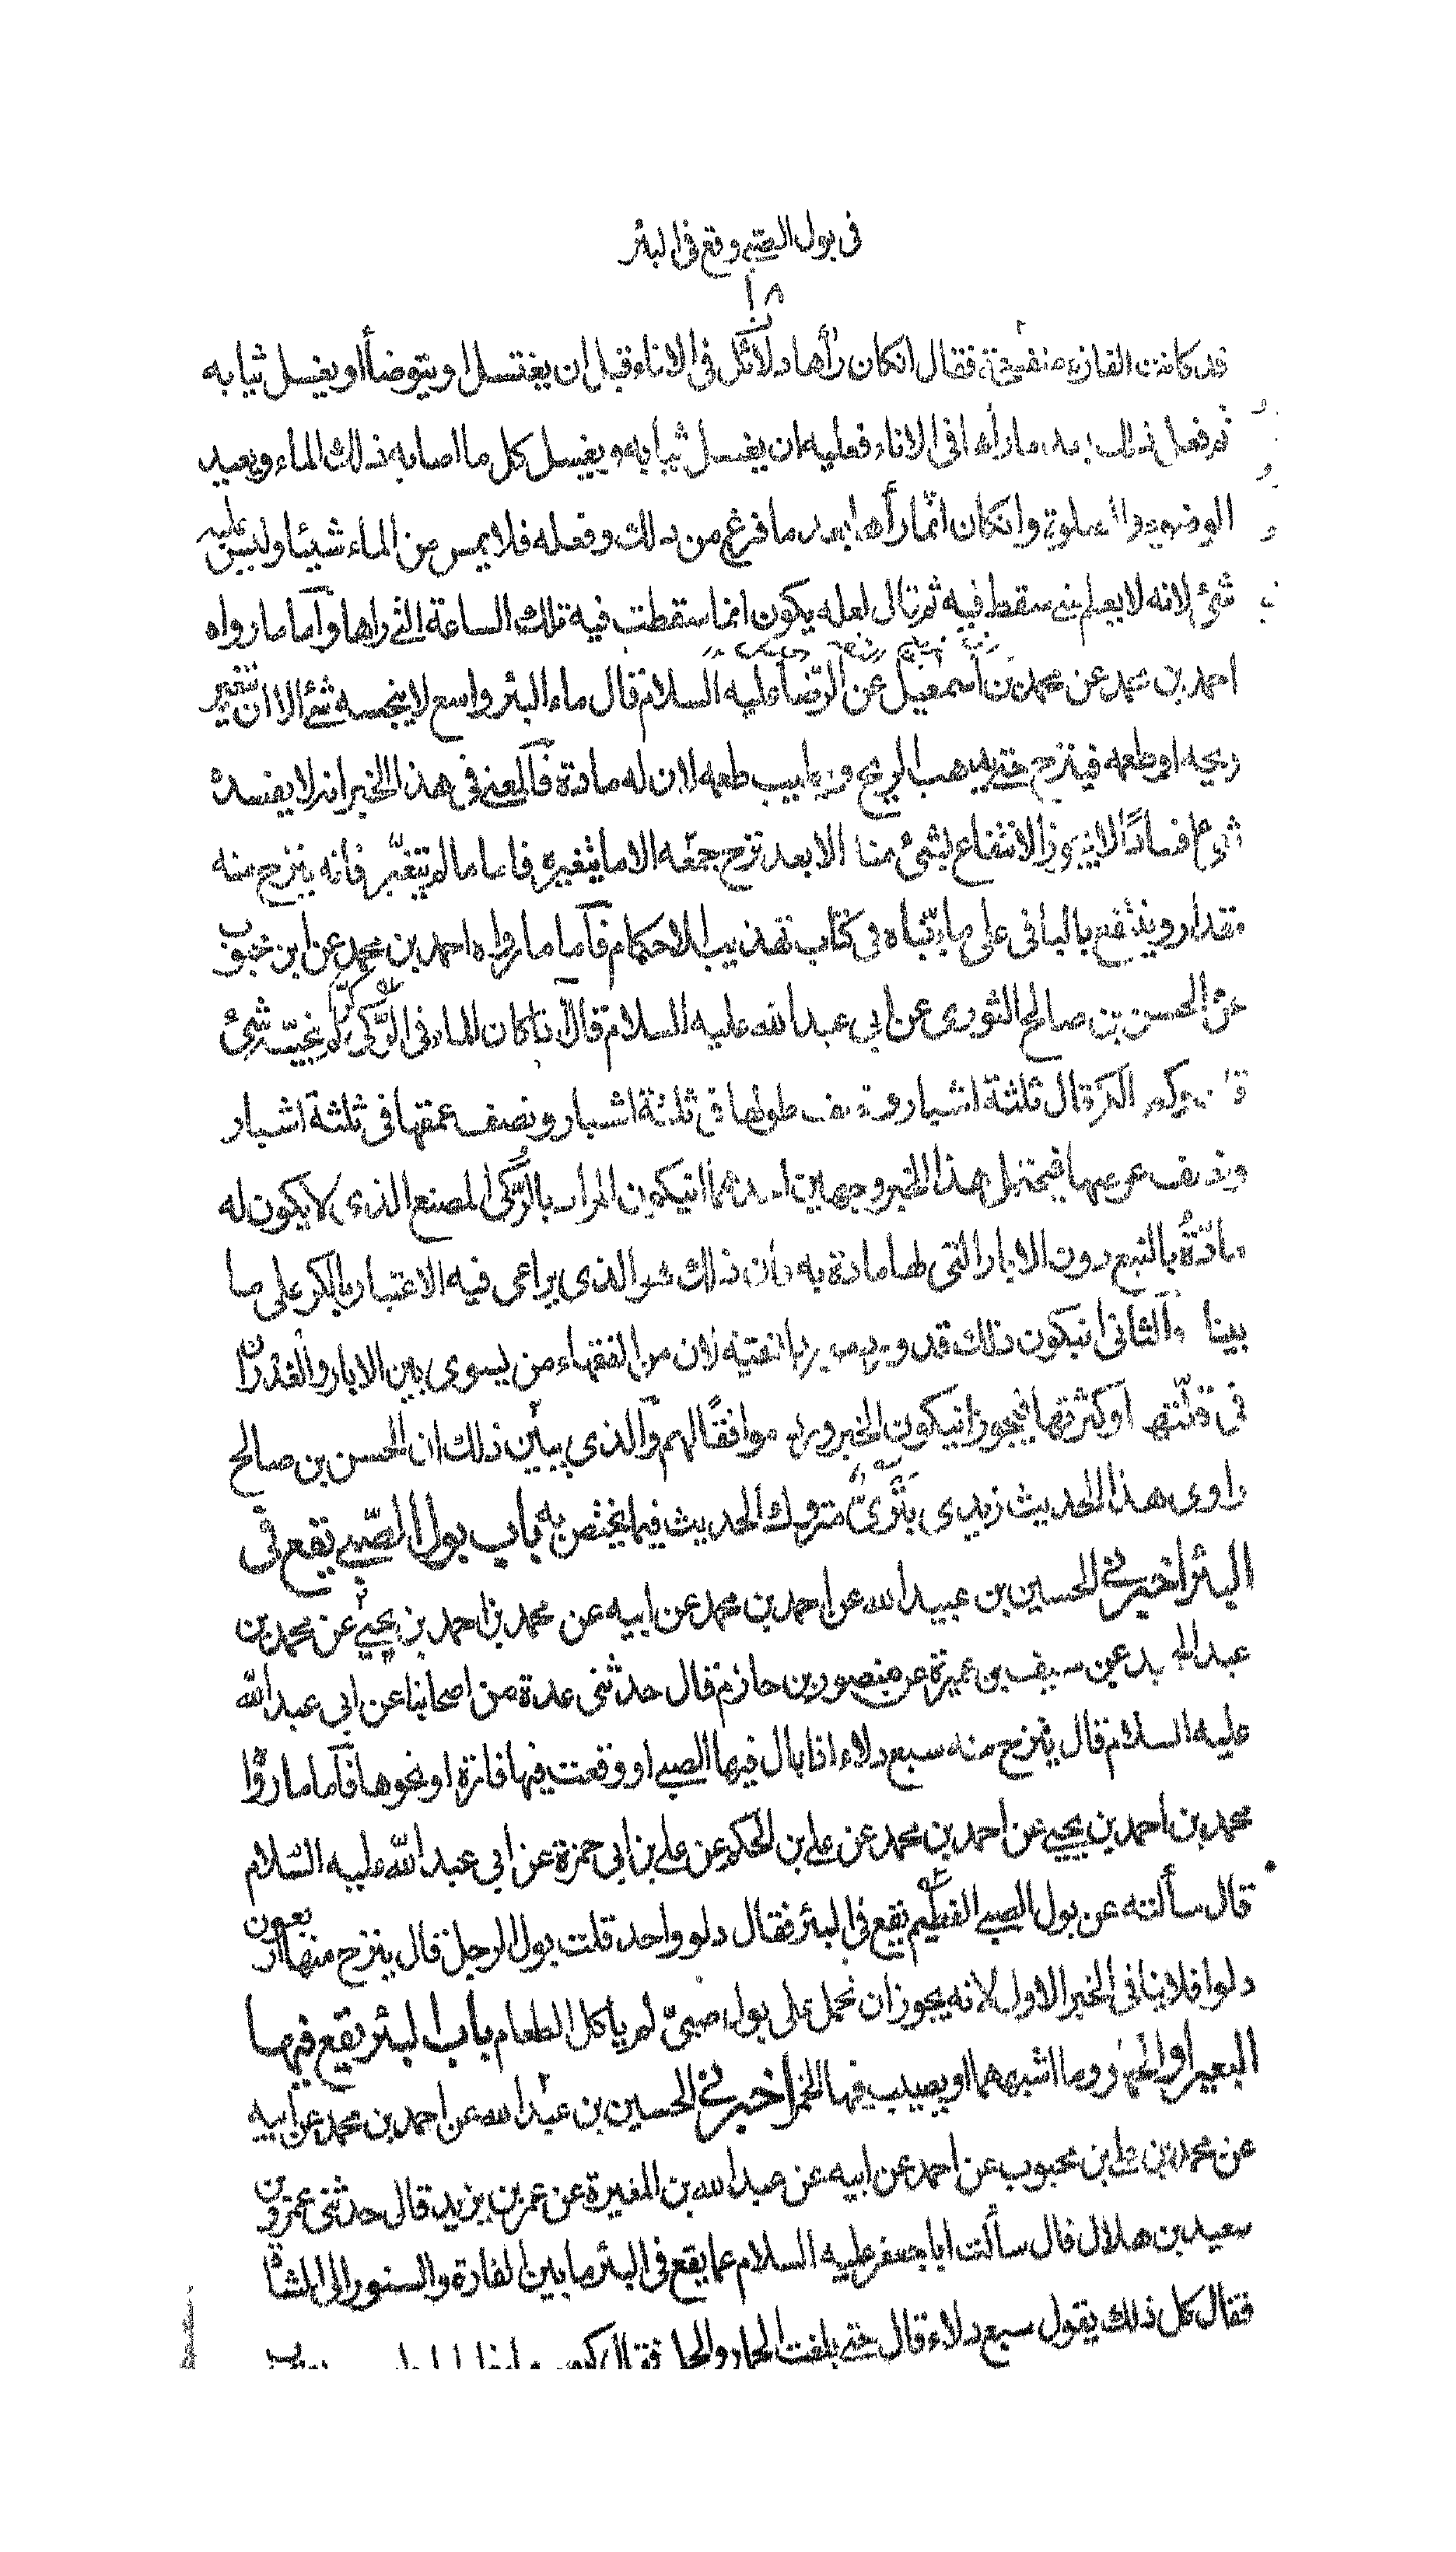 في بول الصبي وقع في البئر
١٨
قد كانت الفارة منفسخة فقال انكان رأها في الاناء قبل ان يغتسل او يتوضأ او يغسل ثيابه
ثم فعل ذلك بعد ما رأها في الاناء فعليه ان يغسل ثيابه ويغسل كل ما اصابه ذلك الماء ويعيد
الوضوء والصلوة وانكان انما رأها بعد ما فرغ من ذلك وفعله فلا يمس من الماء شيئا وليس عليه
شئ لانه لا يعلم متى سقط فيه ثم قال لعله يكون انما سقطت فيه تلك الساعة التي راها وأما ما رواه
احمد بن محمد عن محمد بن اسمعيل عن الرضا عليه السلام قال ماء البئر واسع لا ينجسه شئ الا ان يتغير
ريحه او طعمه فينزح حتى يذهب الريح ويطيب طعمه لان له مادة فالمعنى في هذا الخبر انه لا يفسده
شئ فسادًا لا يجوز الانتفاع بشئ منها الا بعد نزح جمعه الا ما يغيره فاما ما لم يتغير فانه ينزح منه
مقدار وينتفع بالباقي على ما بيّناه في كتاب تهذيب الاحكام فأما ما رواه احمد بن محمد عن ابن محبوب
عن الحسن بن صالح الثوري عن ابي عبد الله عليه السلام قال اذا كان الماء في الركي كرّا لم ينجسه شئ
قلت وكم الكر قال ثلثة اشبار ونصف طولها في ثلثة اشبار ونصف عمقها في ثلثة اشبار
ونصف عرضها فيحتمل هذا الخبر وجهين احدهما انيكون المراد بالركي المصنع الذي لا يكون له
مادّة بالنبع دون الابار التي لها مادة به فان ذلك هو الذي يراعى فيه الاعتبار بالكر على ما
بينا والثاني انيكون ذلك قد ورد مورد التقية لان من الفقهاء من يسوي بين الابار والغدران
في قلتها وكثرتها فيجوز انيكون الخبر ورد موافقًا لهم والذي يبين ذلك ان الحسن بن صالح
راوي هذا الحديث زيدي بتريّ متروك الحديث فيما يختص به باب بول الصبي يقع في
البئر اخبرني الحسين بن عبيد الله عن احمد بن محمد عن ابيه عن محمد بن احمد بن يحيى عن محمد بن
عبد الحميد عن سيف بن عميرة عن منصور بن حازم قال حدثني عدة من اصحابنا عن ابي عبد الله
عليه السلام قال ينزح منه سبع دلاء اذا بال فيها الصبي او وقعت فيها فارة او نحوها فأما ما رواه
محمد بن احمد بن يحيى عن احمد بن محمد عن علي بن الحكم عن علي بن ابي حمزة عن ابي عبد الله عليه السلام
قال سألته عن بول الصبي الفطيم يقع في البئر فقال دلو واحد قلت بول الرجل قال ينزح منها اربعون
دلوا فلا ينافي الخبر الاول لانه يجوز ان نحمل على بول صبيّ لم يأكل الطعام باب البئر يقع فيها
البعير او الحمار وما اشبههما او يصيب فيها الخمر اخبرني الحسين بن عبيد الله عن احمد بن محمد عن ابيه
عن محمد بن علي بن محبوب عن احمد عن ابيه عن عبد الله بن المغيرة عن عمر بن يزيد قال حدثني عمرو بن
سعيد بن هلال قال سألت ابا جعفر عليه السلام عما يقع في البئر ما بين الفارة والسنور الى الشاة
فقال كل ذلك يقول سبع دلاء قال حتى بلغت الحمار والجمل فقال كر